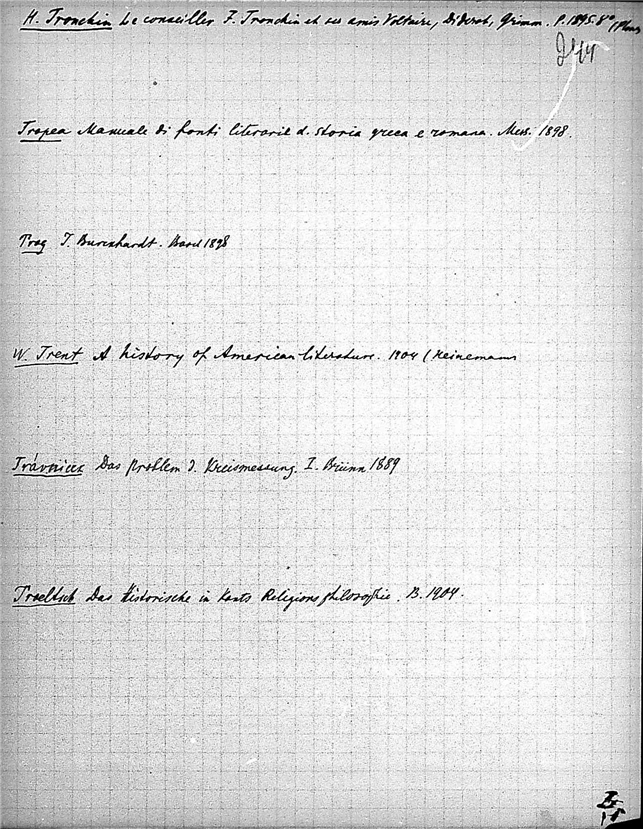 H. Tronchin Le conseiller F. Tronchin et ses amis Voltaire, Diderot, Grimm. P. 1895. 8° (Plon
Tropea Manuale di fonti literarie d. storia greca e romana. Mess. 1898.
Trog J. Burckhardt. Basel 1898
W. Trent A history of American literature. 1904 (Heinemann
Trávníček Das Problem d. Kreismessung. I. Brünn 1889
Troeltsch Das Historische in Kants Religionsphilosophie. B. 1904.